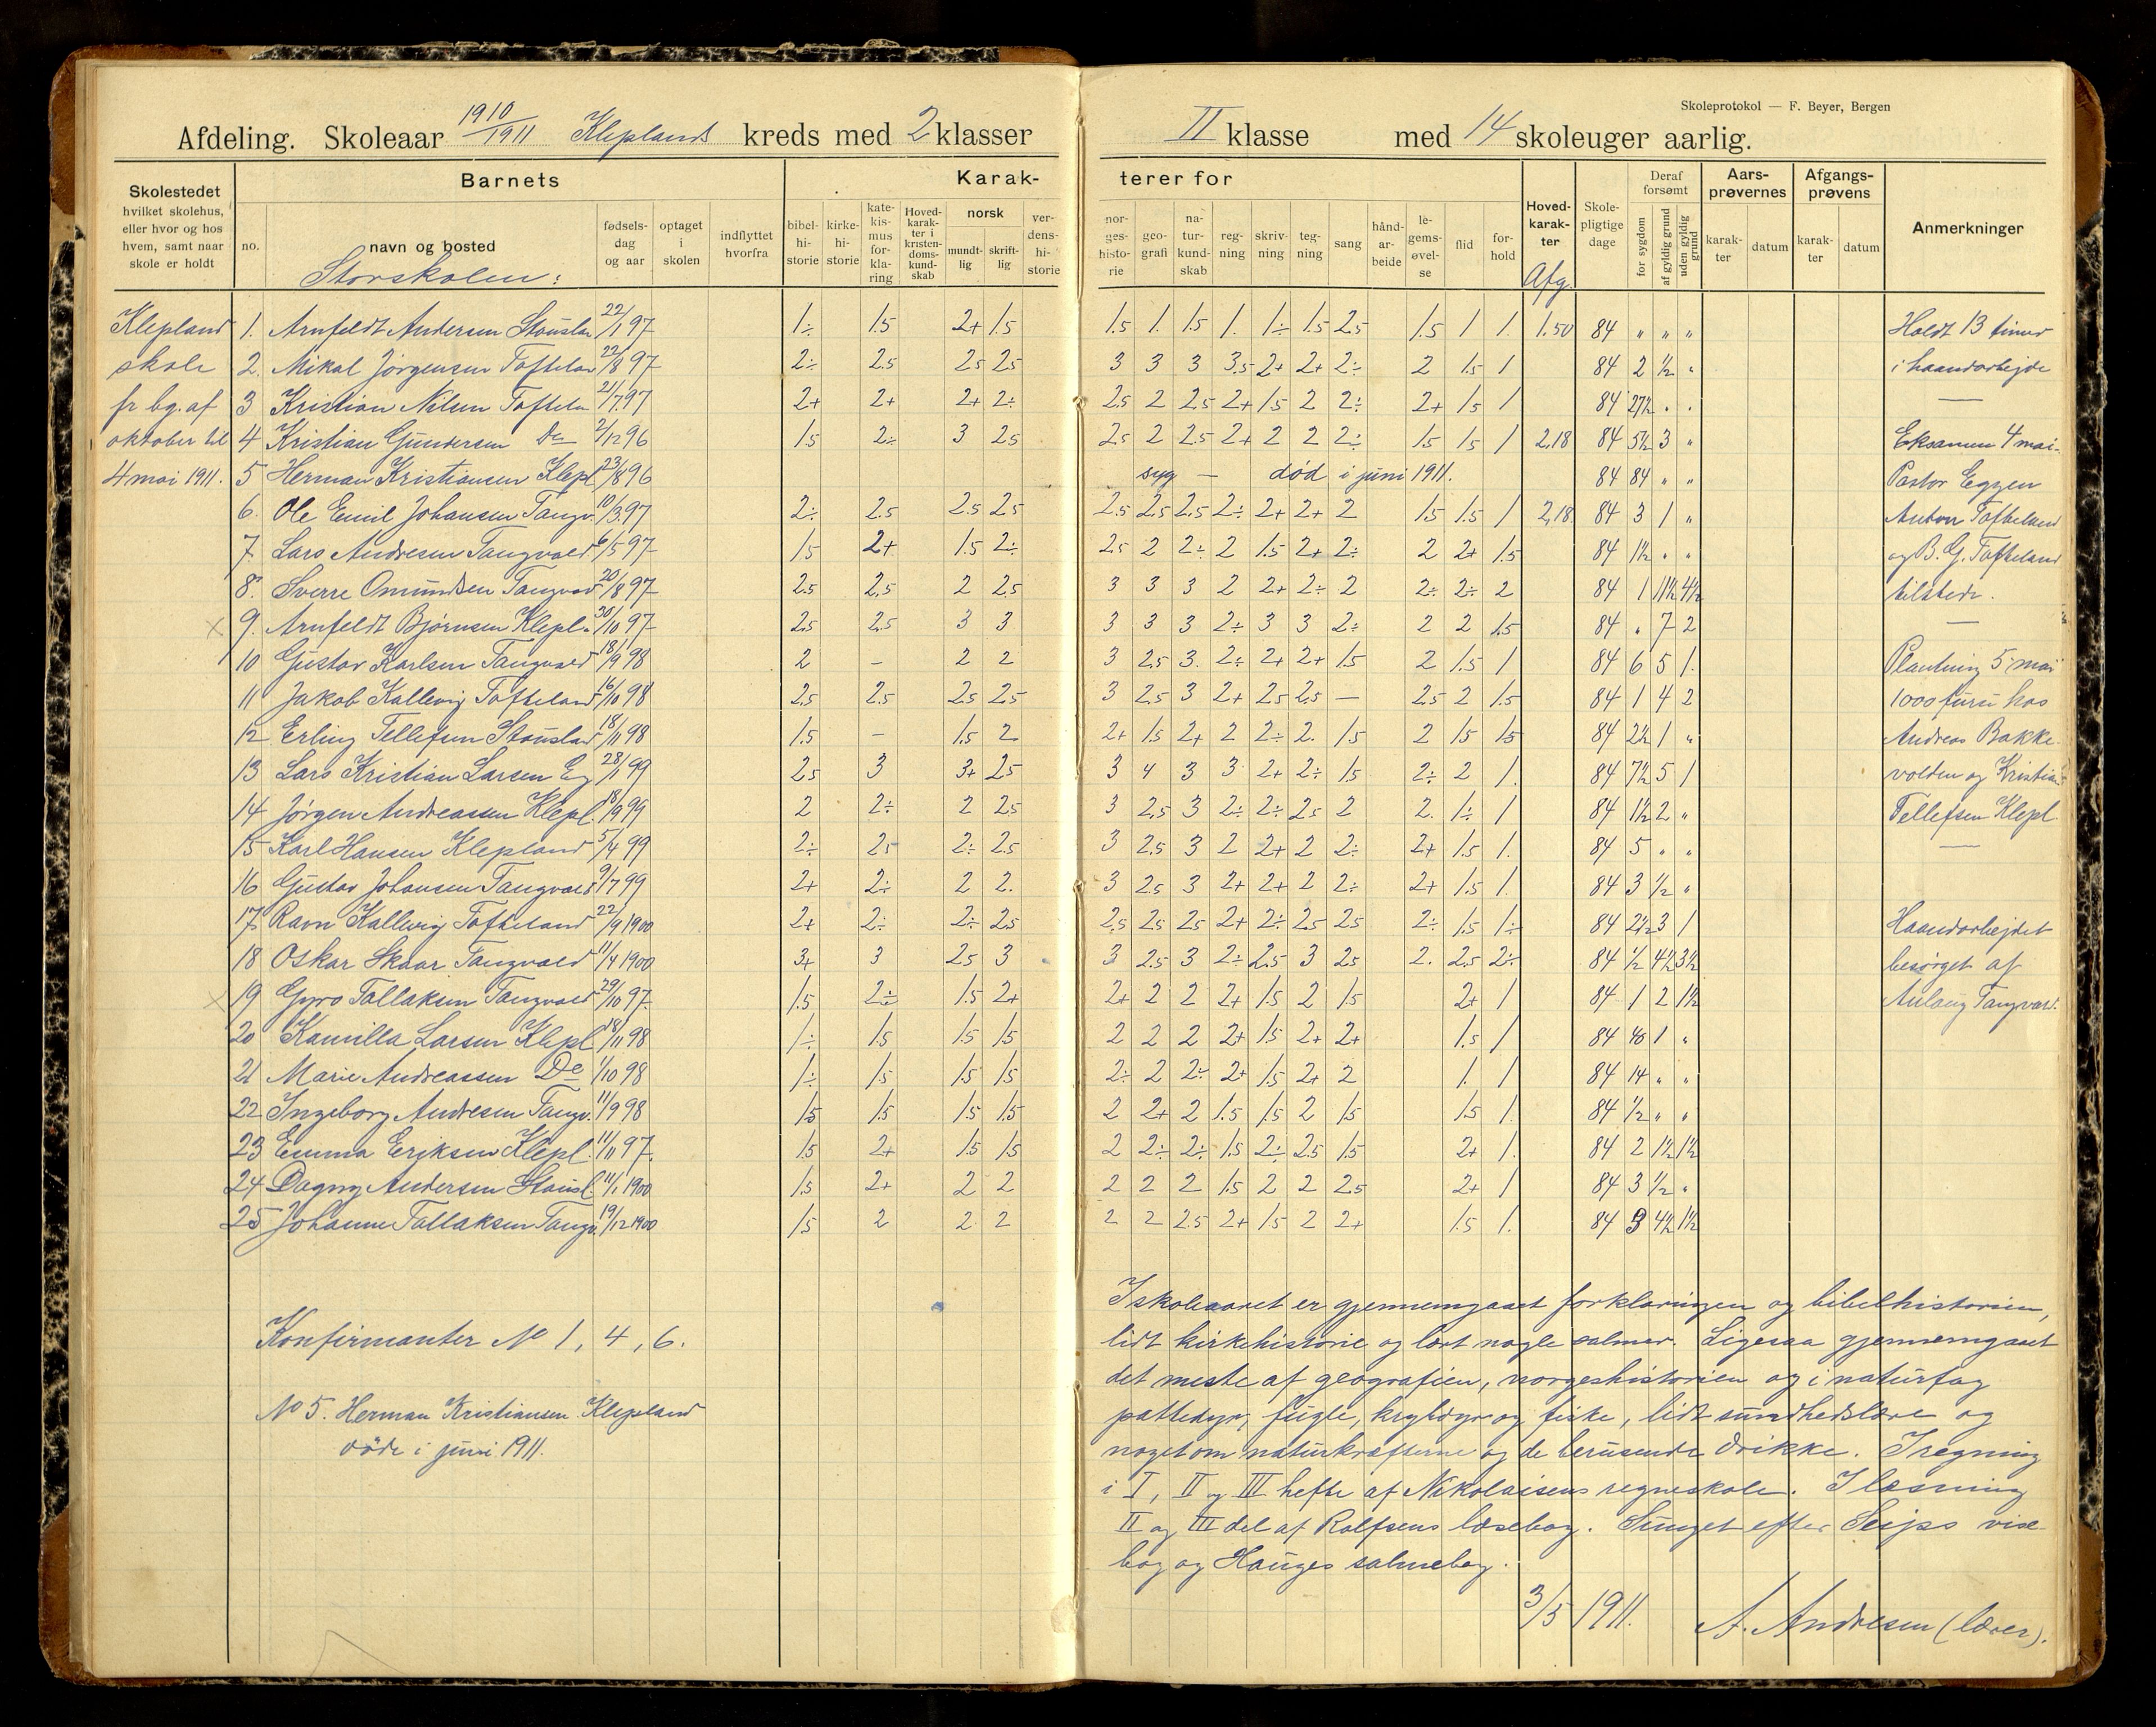 Skoleprotokol — F. Beyer, Bergen
Afdeling. Skoleaar 1910/1911 Kleplands kreds med 2 klasser II klasse med 14 skoleuger aarlig.
Skolestedet hvilket skolehus, eller hvor og hos hvem, samt naar skole er holdt
Barnets
no.
navn og bosted
fødsels-dag og aar
optaget i skolen
indflyttet hvorfra
Karak-terer for
bibel-hi-storie
kirke-hi-storie
kate-kis-mus for-kla-ring
Hoved-karak-ter i kristen-doms-kund-skab
norsk
mundt-lig
skrift-lig
ver-dens-hi-storie
nor-ges-histo-rie
geo-grafi
na-tur-kund-skab
reg-ning
skriv-ning
teg-ning
sang
hånd-ar-beide
le-gems-øvel-se
flid
for-hold
Hoved-karak-ter
Afg.
Skole-pligtige dage
Deraf forsømt
for sygdom
af gyldig grund
uden gyldig grund
Aars-prøvernes
karak-ter
datum
Afgangs-prøvens
karak-ter
datum
Anmerkninger
Storskolen:
Klepland
skole
fr bg. af
oktober til
4 mai 1911.
1. Arnfeldt Andersen 22/1 97 1÷ 1.5 2+ 1.5 1.5 1. 1.5 1. 1÷ 1.5 2.5 1.5 1 1. 1.50 84 " " "
2. Mikal Jørgensen 22/8 97 2÷ 2.5 2.5 2.5 3 3 3 3.5 2+ 2+ 2÷ 2 1.5 1 84 2 1/2 "
3 Kristian Nilsen 21/7 97 2+ 2+ 2+ 2÷ 2.5 2 2.5 2+ 1.5 2 2÷ 2+ 1.5 1 84 27½ " "
4 Kristian Gundersen Do 2/12 96 1.5 2÷ 3 2.5 2.5 2 2.5 2+ 2 2 2÷ 1.5 1.5 1 2,18 84 5½ 3 "
5 Herman Kristiansen Klepl. 23/8 96 syg — død i juni 1911. 84 84 " "
6. Ole Emil Johansen Tangv. 10/3 97 2÷ 2.5 2.5 2.5 2.5 2.5 2.5 2÷ 2+ 2+ 2 1.5 1.5 1 2,18 84 3 1 "
7. Lars Andresen Tangvald 6/5 97 1.5 2+ 1.5 2÷ 2.5 2 2÷ 2 1.5 2+ 2÷ 2 2+ 1.5 84 1½ " "
8. Sverre Omundsen Tangvad 20/8 97 2.5 2.5 2 2.5 3 3 3 2 2+ 2÷ 2 2÷ 2÷ 2 84 1 11½ 4½
9. Arnfeldt Bjørnsen Klepl. 30/10 97 2.5 2.5 3 3 3 3 3 2÷ 3 3 2÷ 2 2 1.5 84 " 7 2
10 Gustav Karlsen Tangvald 18/9 98 2 – 2 2 3 2.5 3. 2÷ 2+ 2+ 1.5 2 1.5 1 84 6 5 1.
11 Jakob Kallevig Tofteland 16/10 98 2.5 2.5 2.5 2.5 3 2.5 3 2+ 2.5 2.5 — 2.5 2 1.5 84 1 4 2
12 Erling Tellefsen 18/11 98 1.5 – 1.5 2 2+ 1.5 2+ 2 2÷ 2. 1.5 2 1.5 1.5 84 2½ 1 "
13 Lars Kristian Larsen Eg 28/1 99 2.5 3 3+ 2.5 3 4 3 3 2+ 2÷ 1.5 2÷ 2 1. 84 7½ 5 1
14 Jørgen Andreassen Klepl. 18/9 99 2 2÷ 2 2.5 3 2.5 3 2÷ 2÷ 2.5 2 2. 1÷ 1 84 1½ 2 "
15 Karl Hansen Klepland 5/4 99 2÷ 2.5 2÷ 2.5 3 2.5 3 2 2+ 2 2÷ 2+ 1.5 1. 84 5 " "
16 Gustav Johansen Tangvald 9/7 99 2+ 2÷ 2 2. 3 2.5 3 2+ 2+ 2 2÷ 2+ 1.5 1. 84 3 1/2 "
17 Ravn Kallevig Tofteland 22/9 1900 2+ 2÷ 2÷ 2.5 2.5 2.5 2.5 2+ 2÷ 2.5 2.5 2÷ 1.5 1÷ 84 2½ 3 1
18 Oskar Skaar Tangvald 11/4 1900 3+ 3 2.5 3 3 2.5 3 2÷ 2.5 3 2.5 2. 2.5 2÷ 84 1/2 4½ 3½
19 Gyro Tallaksen Tangvald 29/10 97. 1.5 2÷ 1.5 2+ 2+ 2 2 2+ 1.5 2 1.5 2+ 1 84 1 2 1½
20 Kamilla Larsen Klepl. 18/11 98 1÷ 1.5 1.5 1.5 2 2 2 2+ 1.5 2+ 2+ 1.5 1 84 40 1 "
21 Marie Andreassen Do 1/10 98 1÷ 1.5 1.5 1.5 2÷ 2 2÷ 2+ 1.5 2+ 2 1. 1 84 14 " "
22 Ingeborg Andresen Tangv. 11/9 98 1.5 1.5 1.5 1.5 2 2+ 2 1.5 1.5 2 1.5 1.5 1. 84 1/2 " "
23 Emma Eriksen Klepl. 11/11 97. 1.5 2+ 1.5 1.5 2 2÷ 2÷ 1.5 2÷ 2.5 1.5 2+ 1. 84 2 1½ 1½
24 Dagny Andersen 11/1 1900 1.5 2+ 2 2 2 2 2 1.5 2 2 2.5 2+ 1 84 3 1/2 "
25 Johanne Tallaksen Tangv. 19/12 1900 1.5 2 2 2 2 2 2.5 2+ 1.5 2 2+ 1.5 1. 84 3 4½ 1½
Holdt 13 timer
i haandarbejde
Eksamen 4 mai.
Pastor Eggen
Anton Tofteland
og B. G. Tofteland
tilstede.
Plantning 5 mai
1000 furu hos
Andreas Bakke-
volden og Kristian
Tellefsen Klepl.
Haandarbejdet
besørget af
Aulaug Tangvald.
Konfirmanter No 1, 4, 6.
No 5. Herman Kristiansen Klepland
døde i juni 1911.
I skoleaaret er gjennemgaaet forklaringen og bibelhistorien,
lidt kirkehistorie og lært nogle salmer. Ligesaa gjennemgaaet
det meste af geografien, norgeshistorien og i naturfag
pattedyr, fugle, krybdyr og fiske, lidt sundhedslære og
noget om naturkræfterne og de berusende drikke. I regning
i I, II og III hefte af Nikolaisens regneskole. I læsning
II og III del af Rolfsens læsebog. Sunget efter vise-
bog og Hauges salmebog.
3/5 1911. A. Andresen (lærer).